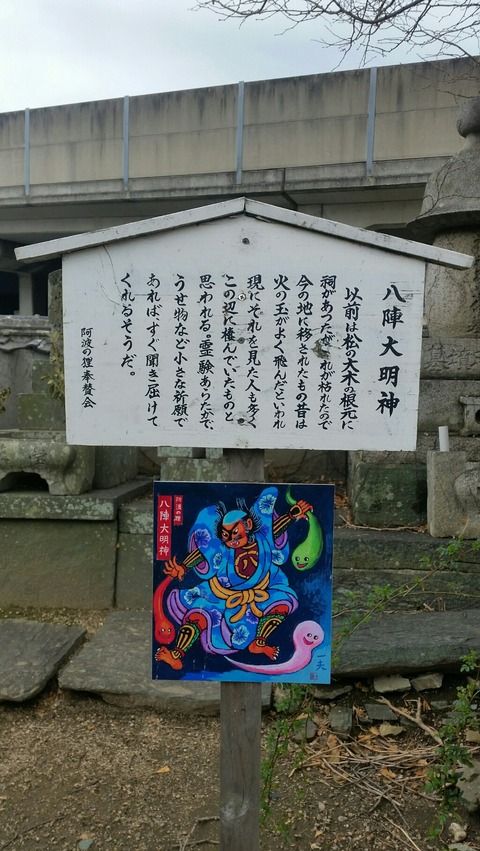 八陣大明神
以前は松の大木の根元に
祠があったがそれが枯れたので
今の地に移されたもの昔は
火の玉がよく飛んだといわれ
現にそれを見た人も多く
この辺に棲んでいたものと
思われる。霊験あらたかで、
うせ物など小さな祈願で
あればすぐ聞き届けて
くれるそうだ。
阿波の狸奉賛会
阿波の狸
八陣大明神
八
一夫